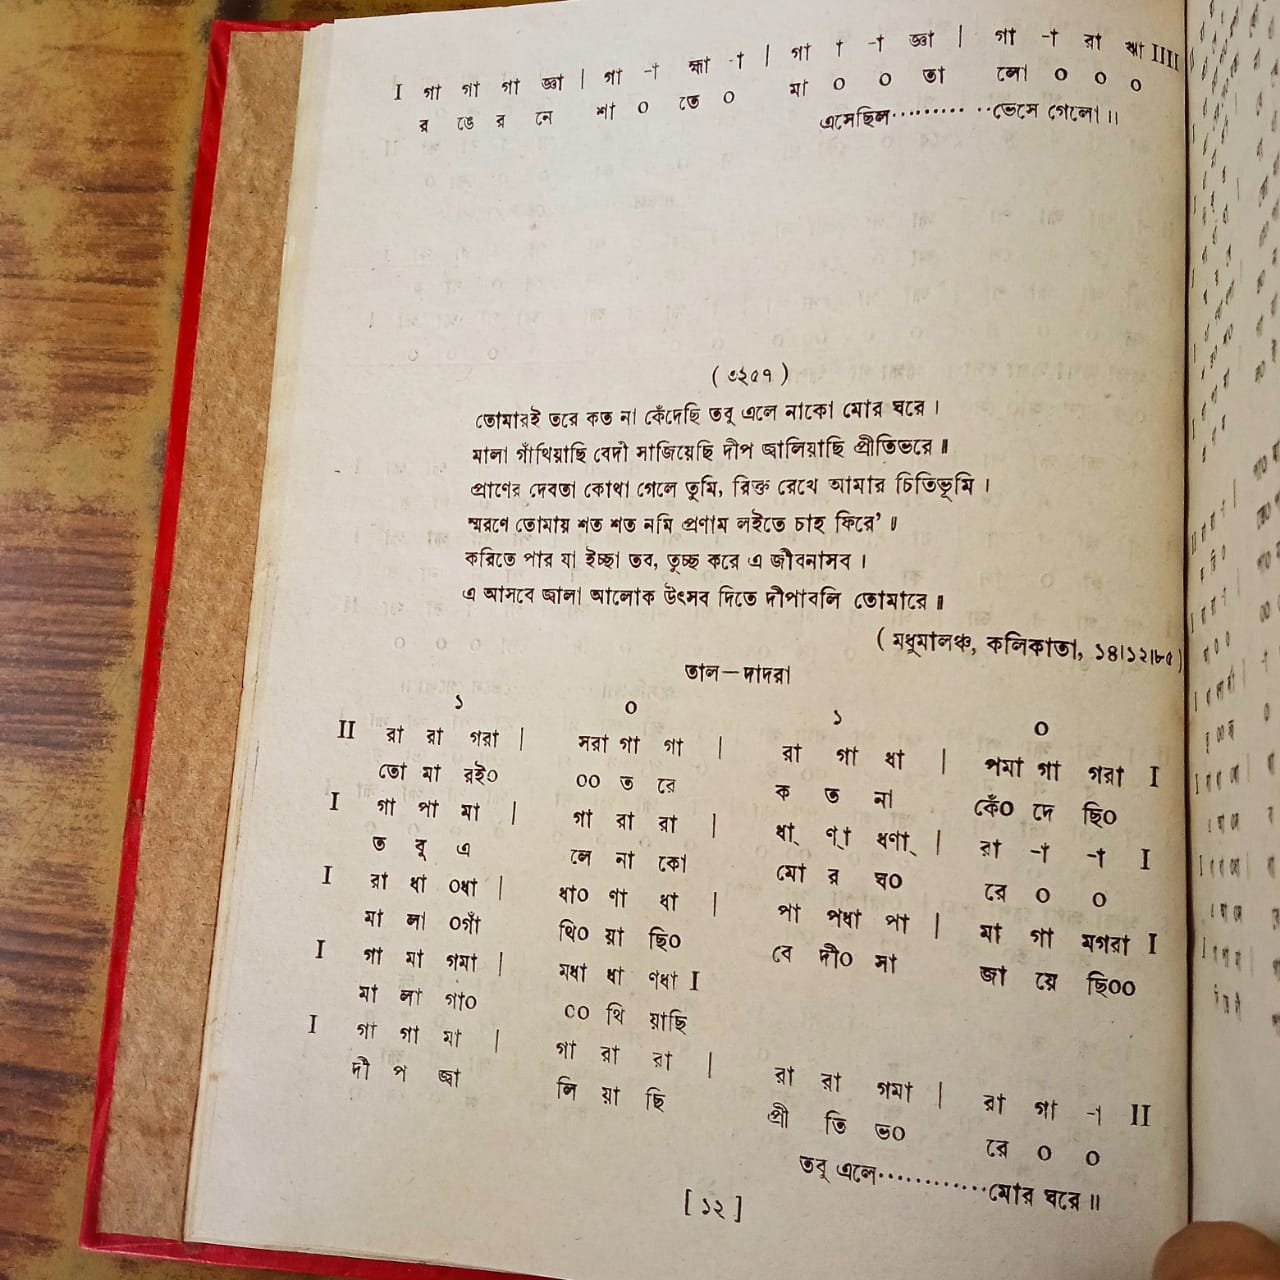 I গা গা গা জ্ঞা | গা -া হ্মা -া | গা া -া জ্ঞা | গা -া রা ঋা IIII
র ঙে র নে শা ০ তে ০ মা ০ ০ তা লো ০ ০ ০
এসেছিল········· ··ভেসে গেলো ॥
( ৩২৫৭ )
তোমারই তরে কত না কেঁদেছি তবু এলে নাকো মোর ঘরে ।
মালা গাঁথিয়াছি বেদী সাজিয়েছি দীপ জ্বালিয়াছি প্রীতিভরে ॥
প্রাণের দেবতা কোথা গেলে তুমি, রিক্ত রেখে আমার চিতিভূমি ।
স্মরণে তোমায় শত শত নমি প্রণাম লইতে চাহ ফিরে' ॥
করিতে পার যা ইচ্ছা তব, তুচ্ছ করে এ জীবনাসব ।
এ আসবে জ্বালা আলোক উৎসব দিতে দীপাবলি তোমারে ॥
( মধুমালঞ্চ, কলিকাতা, ১৪।১২।৮৫ )
তাল—দাদরা
১ ০ ১ ০
II রা রা গরা | সরা গা গা | রা গা ধা | পমা গা গরা I
তো মা রই০ ০০ ত রে ক ত না কেঁ০ দে ছি০
I গা পা মা | গা রা রা | ধা্ ণা্ ধণা্ | রা -া -া I
ত বু এ লে না কো মো র ঘ০ রে ০ ০
I রা ধা ০ধা | ধা০ ণা ধা | পা পধা পা | মা গা মগরা I
মা লা ০গাঁ থি০ য়া ছি০ বে দী০ সা জা য়ে ছি০০
I গা মা গমা | মধা ধা ণধা I
মা লা গা০ ০০ থি য়াছি
I গা গা মা | গা রা রা | রা রা গমা | রা গা -া II
দী প জ্বা লি য়া ছি প্রী তি ভ০ রে ০ ০
তবু এলে············মোর ঘরে ॥
[ ১২ ]